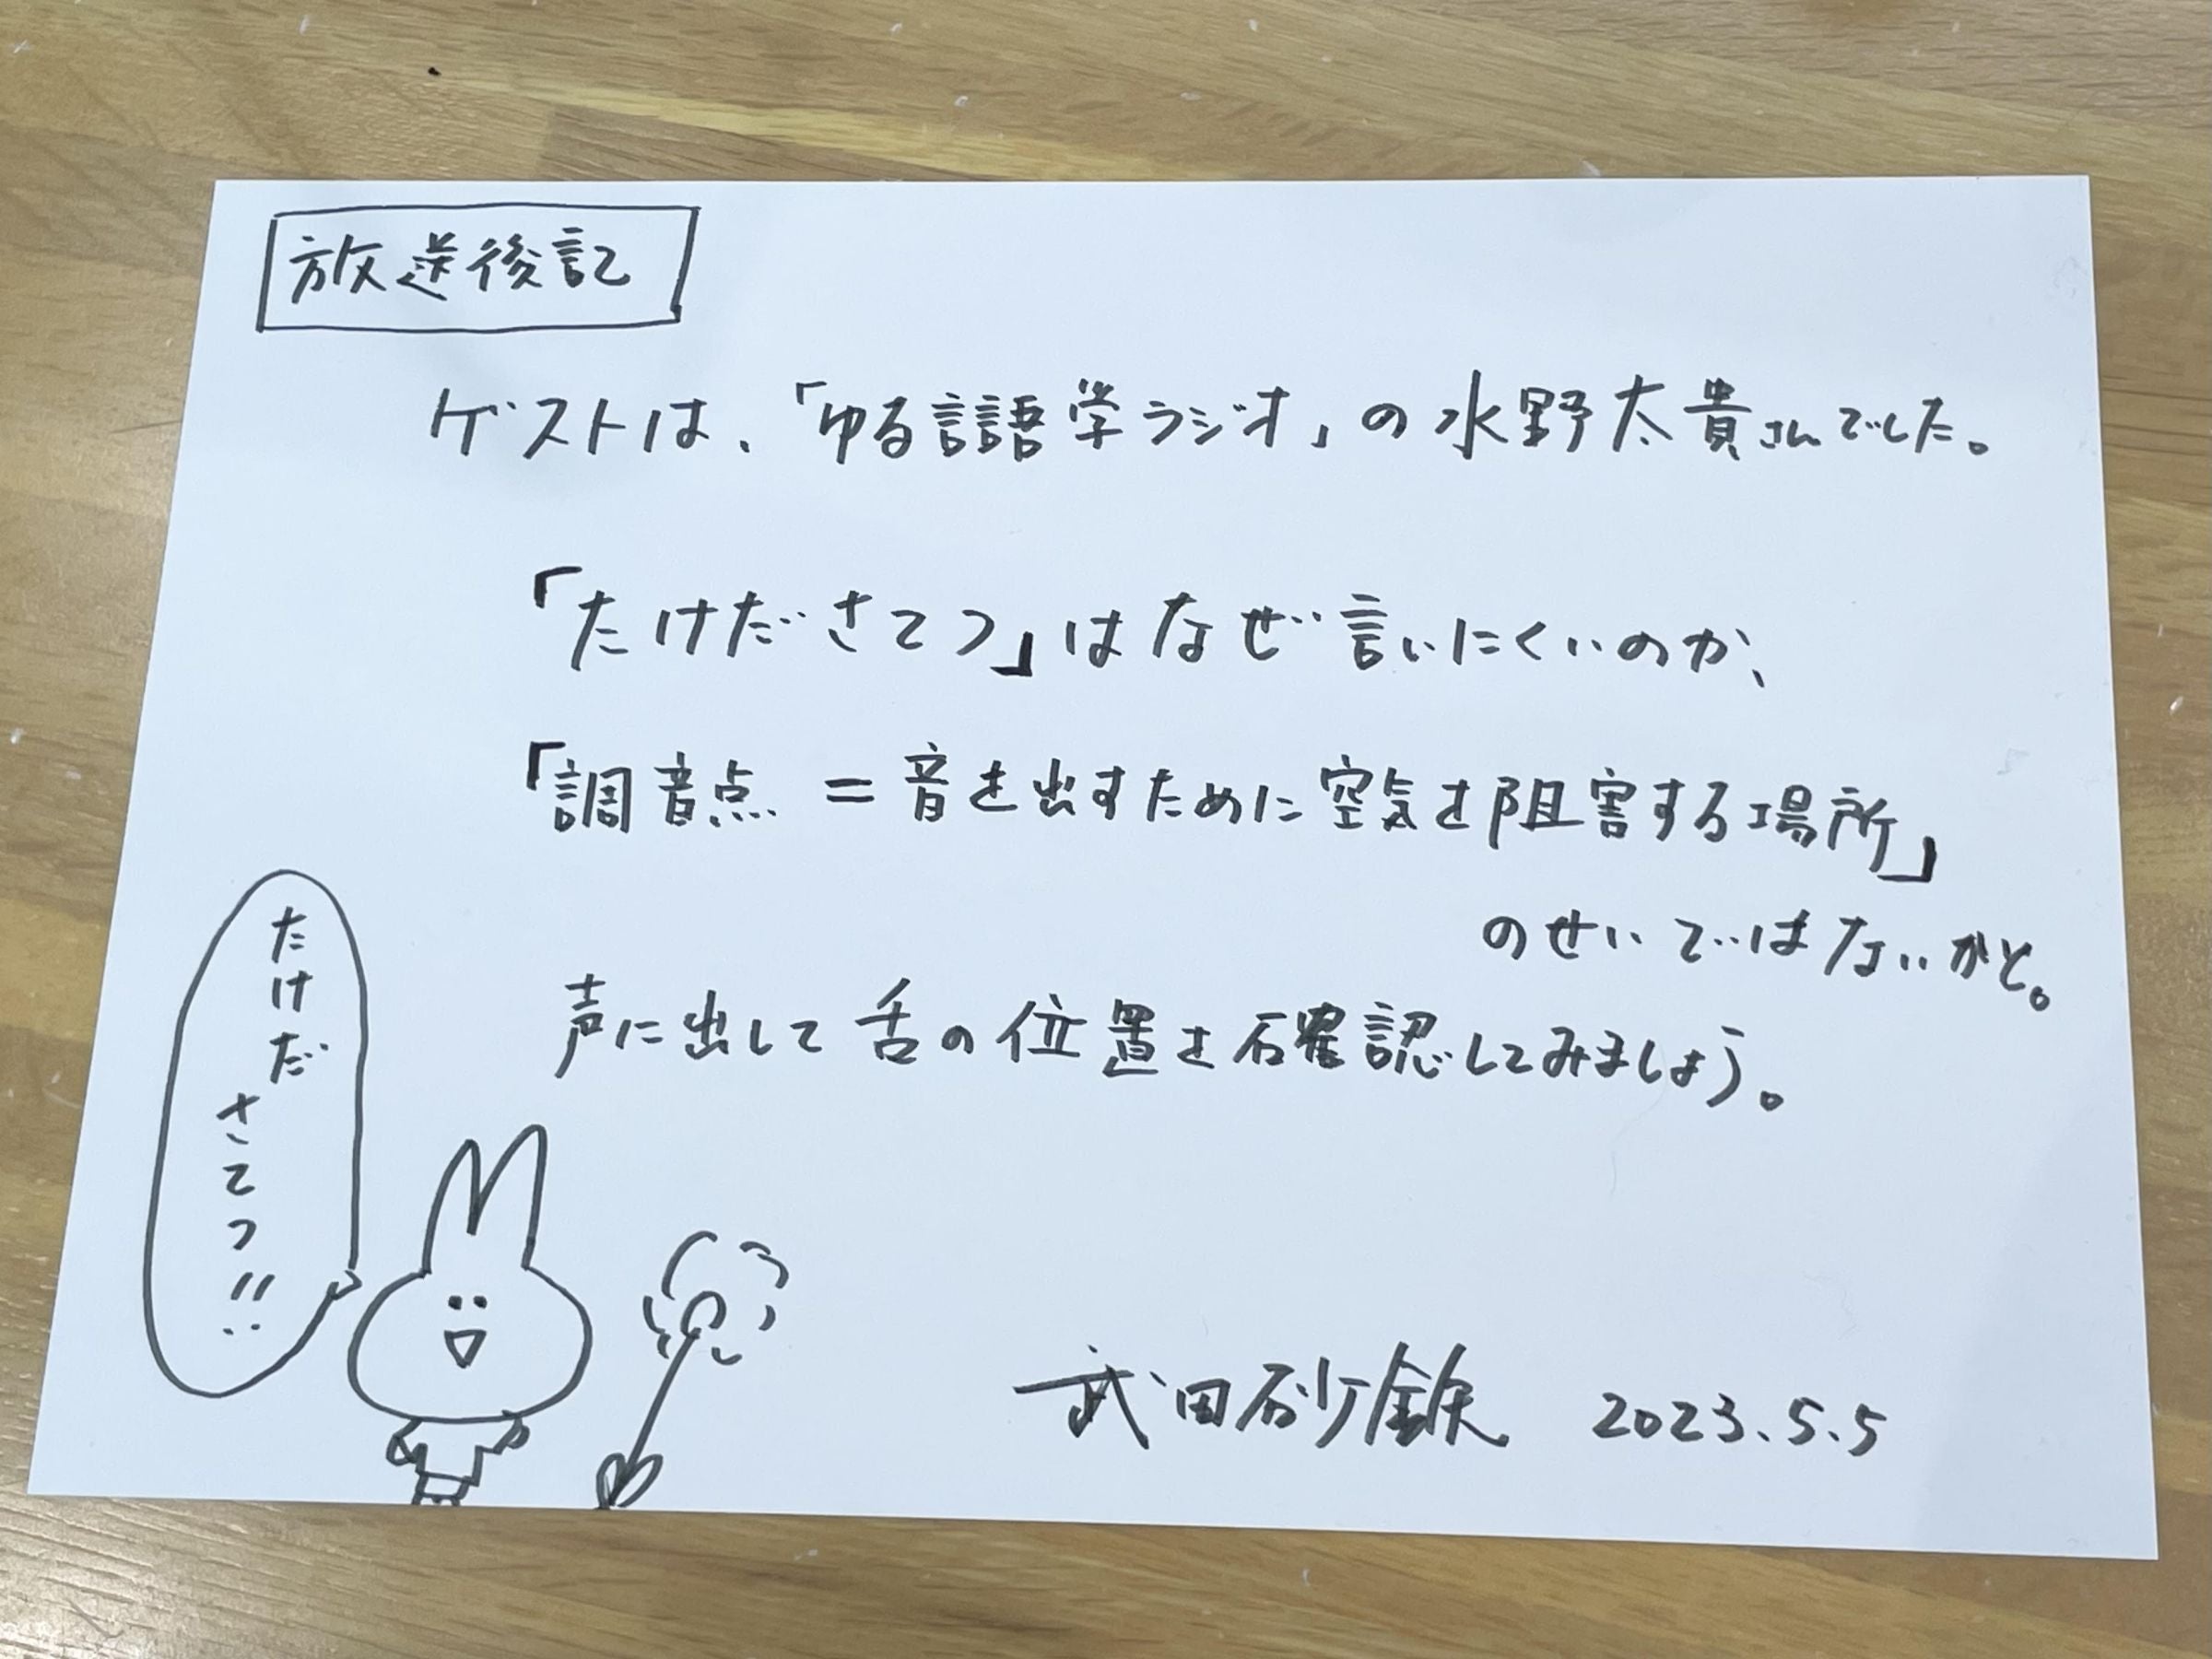 放送後記
ゲストは、「ゆる言語学ラジオ」の水野太貴さんでした。
「たけださてつ」はなぜ言いにくいのか、
「調音点 = 音を出すために空気を阻害する場所」
のせいではないかと。
声に出して舌の位置を確認してみましょう。
たけだ
さてつ!!
武田砂鉄 2023.5.5